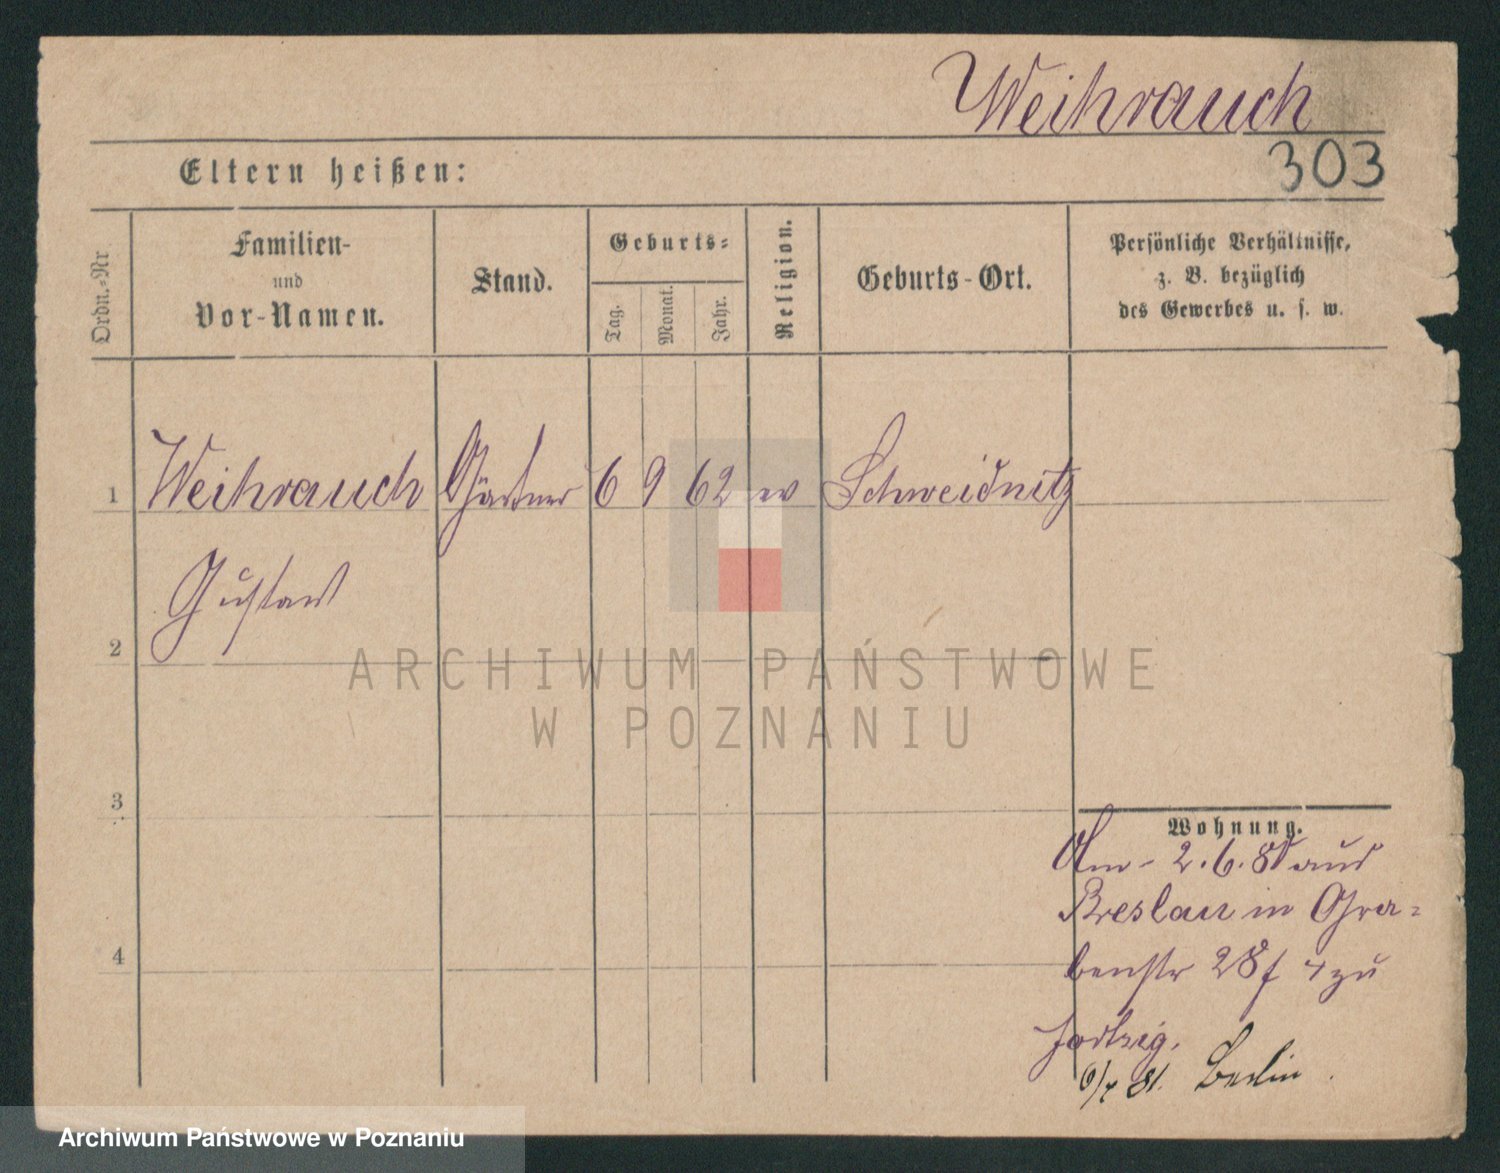 Weihrauch
Eltern heißen:
303
Ordn.-Nr
Familien-
und
Vor-Namen.
Stand.
Geburts-
Tag.
Monat.
Jahr.
Religion.
Geburts-Ort.
Persönliche Verhältnisse,
z. B. bezüglich
des Gewerbes u. s. w.
1 Weihrauch Gärtner 6 9 62 ev Schweidnitz
Gustav
2
3
4
Wohnung.
2.6.80 aus
Breslau in Gra-
benstr 28 zu
81. Berlin
ARCHIWUM PAŃSTWOWE
W POZNANIU
Archiwum Państwowe w Poznaniu